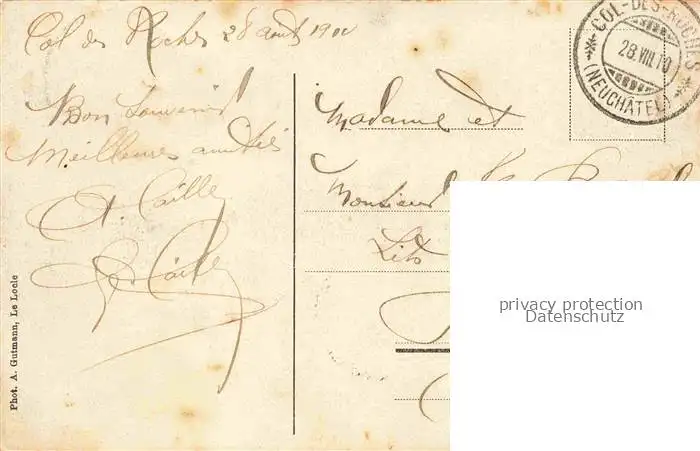 Col des Roches 28 août 1910
Bon Souvenir
Meilleures amitiés
A. Caille
Caille
Phot. A. Gutmann, Le Locle
COL-DES-ROCHES
28.VIII.10
(NEUCHÂTEL)
Madame et
Monsieur
Lits
privacy protection
Datenschutz